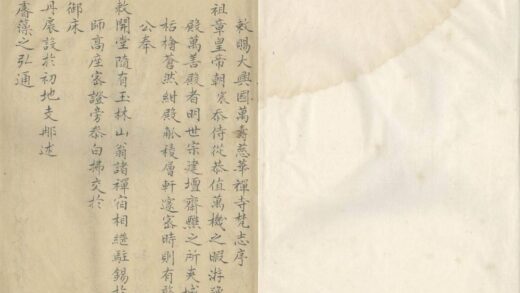 敕賜大興國萬壽慈華禪寺梵志序
祖章皇帝朝宸忝侍從恭值萬機之暇游
殿萬善殿者明世宗建壇齋醮之所夾城
栝檜蒼然紺殿觚稜層軒邃密時則有
公奉
敕開堂隨有玉林山翁諸禪宿相繼駐錫於
師高座密證旁參白拂交於
御床
丹扆設於初地支那述
膚藻之弘通